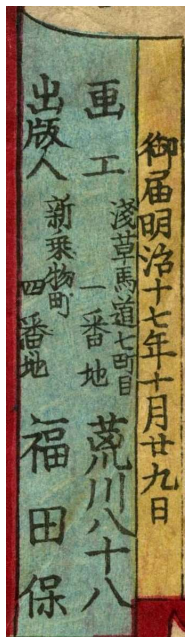 御届明治十七年十月廿九日
画工 淺草馬道七町目一番地 荒川八十八
出版人 新乗物町四番地 福田保